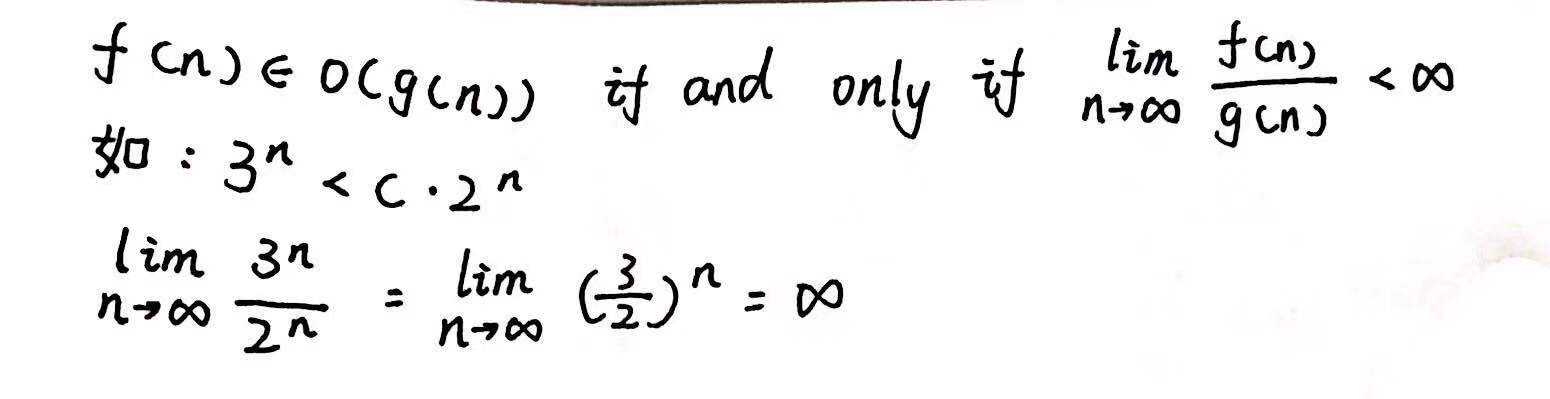 f(n) ∈ O(g(n)) if and only if lim n→∞ f(n)/g(n) < ∞
如: 3^n < C · 2^n
lim n→∞ 3^n/2^n = lim n→∞ (3/2)^n = ∞